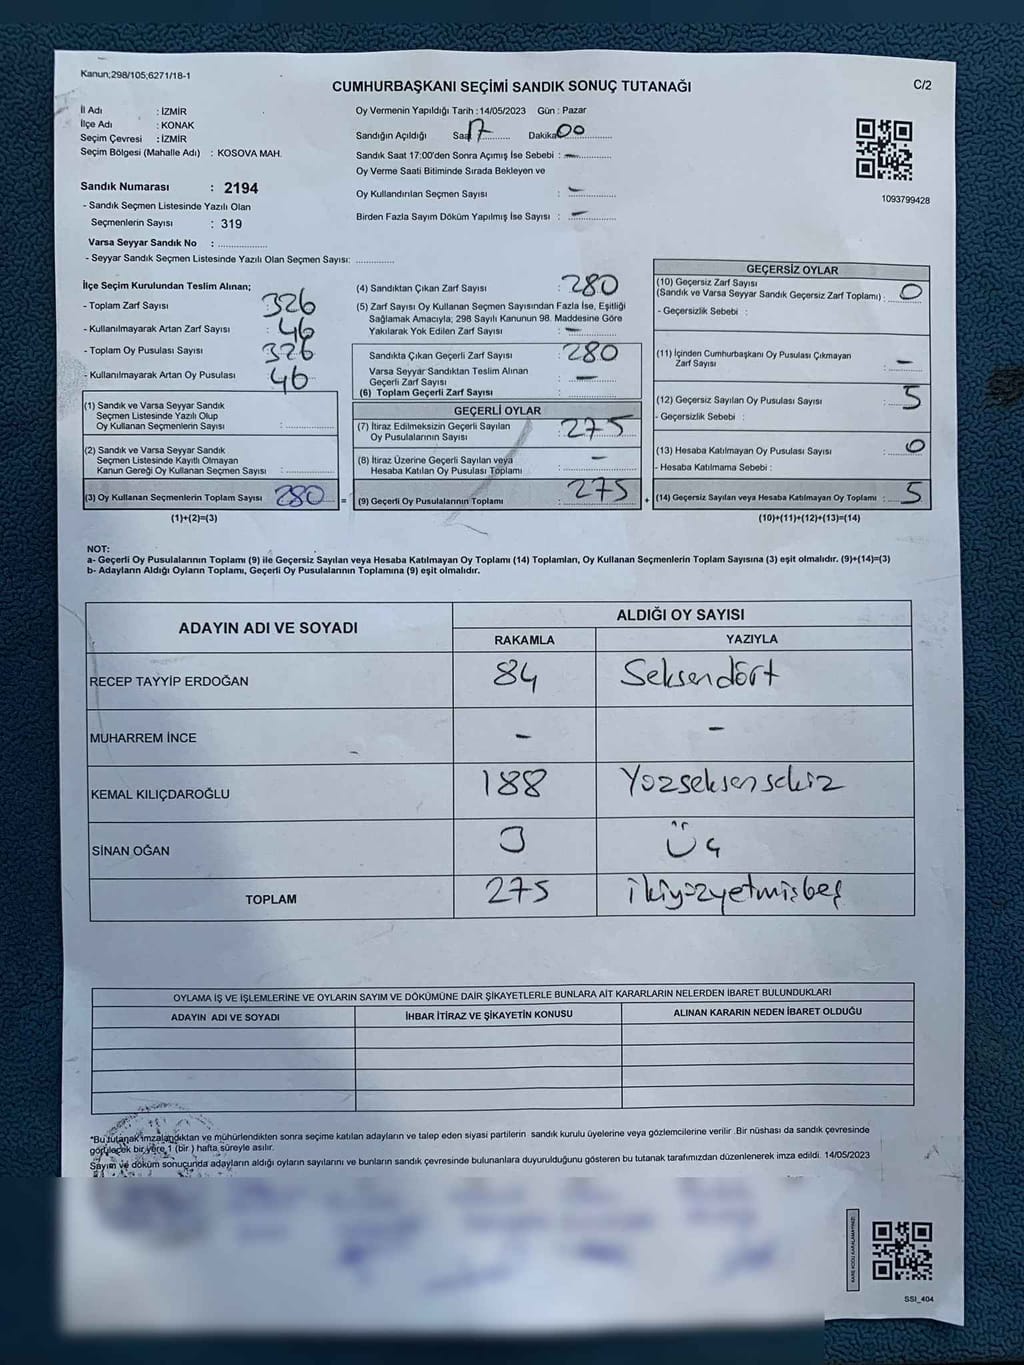 Kanun;298/105;6271/18-1
CUMHURBAŞKANI SEÇİMİ SANDIK SONUÇ TUTANAĞI
C/2
İl Adı : İZMİR
İlçe Adı : KONAK
Seçim Çevresi : İZMİR
Seçim Bölgesi (Mahalle Adı) : KOSOVA MAH.
Sandık Numarası : 2194
- Sandık Seçmen Listesinde Yazılı Olan
Seçmenlerin Sayısı : 319
Varsa Seyyar Sandık No : ................
- Seyyar Sandık Seçmen Listesinde Yazılı Olan Seçmen Sayısı: .............
Oy Vermenin Yapıldığı Tarih :14/05/2023 Gün : Pazar
Sandığın Açıldığı Saat 17 Dakika 00
Sandık Saat 17:00'den Sonra Açımış İse Sebebi : —
Oy Verme Saati Bitiminde Sırada Bekleyen ve
Oy Kullandırılan Seçmen Sayısı : —
Birden Fazla Sayım Döküm Yapılmış İse Sayısı : —
1093799428
İlçe Seçim Kurulundan Teslim Alınan;
- Toplam Zarf Sayısı : 326
- Kullanılmayarak Artan Zarf Sayısı : 46
- Toplam Oy Pusulası Sayısı : 326
- Kullanılmayarak Artan Oy Pusulası : 46
(1) Sandık ve Varsa Seyyar Sandık
Seçmen Listesinde Yazılı Olup
Oy Kullanan Seçmenlerin Sayısı :
(2) Sandık ve Varsa Seyyar Sandık
Seçmen Listesinde Kayıtlı Olmayan
Kanun Gereği Oy Kullanan Seçmen Sayısı :
(3) Oy Kullanan Seçmenlerin Toplam Sayısı 280 =
(1)+(2)=(3)
(4) Sandıktan Çıkan Zarf Sayısı : 280
(5) Zarf Sayısı Oy Kullanan Seçmen Sayısından Fazla İse, Eşitliği
Sağlamak Amacıyla; 298 Sayılı Kanunun 98. Maddesine Göre
Yakılarak Yok Edilen Zarf Sayısı : —
Sandıkta Çıkan Geçerli Zarf Sayısı : 280
Varsa Seyyar Sandıktan Teslim Alınan
Geçerli Zarf Sayısı : —
(6) Toplam Geçerli Zarf Sayısı :
GEÇERLİ OYLAR
(7) İtiraz Edilmeksizin Geçerli Sayılan
Oy Pusulalarının Sayısı : 275
(8) İtiraz Üzerine Geçerli Sayılan veya
Hesaba Katılan Oy Pusulası Toplamı : —
(9) Geçerli Oy Pusulalarının Toplamı : 275 +
GEÇERSİZ OYLAR
(10) Geçersiz Zarf Sayısı
(Sandık ve Varsa Seyyar Sandık Geçersiz Zarf Toplamı) : 0
- Geçersizlik Sebebi :
(11) İçinden Cumhurbaşkanı Oy Pusulası Çıkmayan
Zarf Sayısı : —
(12) Geçersiz Sayılan Oy Pusulası Sayısı : 5
- Geçersizlik Sebebi :
(13) Hesaba Katılmayan Oy Pusulası Sayısı : 0
- Hesaba Katılmama Sebebi :
(14) Geçersiz Sayılan veya Hesaba Katılmayan Oy Toplamı : 5
(10)+(11)+(12)+(13)=(14)
NOT:
a- Geçerli Oy Pusulalarının Toplamı (9) ile Geçersiz Sayılan veya Hesaba Katılmayan Oy Toplamı (14) Toplamları, Oy Kullanan Seçmenlerin Toplam Sayısına (3) eşit olmalıdır. (9)+(14)=(3)
b- Adayların Aldığı Oyların Toplamı, Geçerli Oy Pusulalarının Toplamına (9) eşit olmalıdır.
ADAYIN ADI VE SOYADI ALDIĞI OY SAYISI
RAKAMLA YAZIYLA
RECEP TAYYİP ERDOĞAN 84 Seksendört
MUHARREM İNCE – –
KEMAL KILIÇDAROĞLU 188 Yüzseksensekiz
SİNAN OĞAN 3 Üç
TOPLAM 275 ikiyüzyetmişbeş
OYLAMA İŞ VE İŞLEMLERİNE VE OYLARIN SAYIM VE DÖKÜMÜNE DAİR ŞİKAYETLERLE BUNLARA AİT KARARLARIN NELERDEN İBARET BULUNDUKLARI
ADAYIN ADI VE SOYADI İHBAR İTİRAZ VE ŞİKAYETİN KONUSU ALINAN KARARIN NEDEN İBARET OLDUĞU
*Bu tutanak imzalandıktan ve mühürlendikten sonra seçime katılan adayların ve talep eden siyasi partilerin sandık kurulu üyelerine veya gözlemcilerine verilir .Bir nüshası da sandık çevresinde
görülecek bir yere 1 (bir ) hafta süreyle asılır.
Sayım ve döküm sonucunda adayların aldığı oyların sayılarını ve bunların sandık çevresinde bulunanlara duyurulduğunu gösteren bu tutanak tarafımızdan düzenlenerek imza edildi. 14/05/2023
KARE KODU KARALAMAYINIZ!
SSI_404